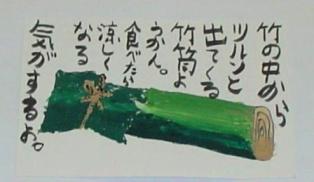 竹の中から
ツルンと
出てくる
竹筒よ
うかん。
食べたら
涼しく
なる
気がするよ。